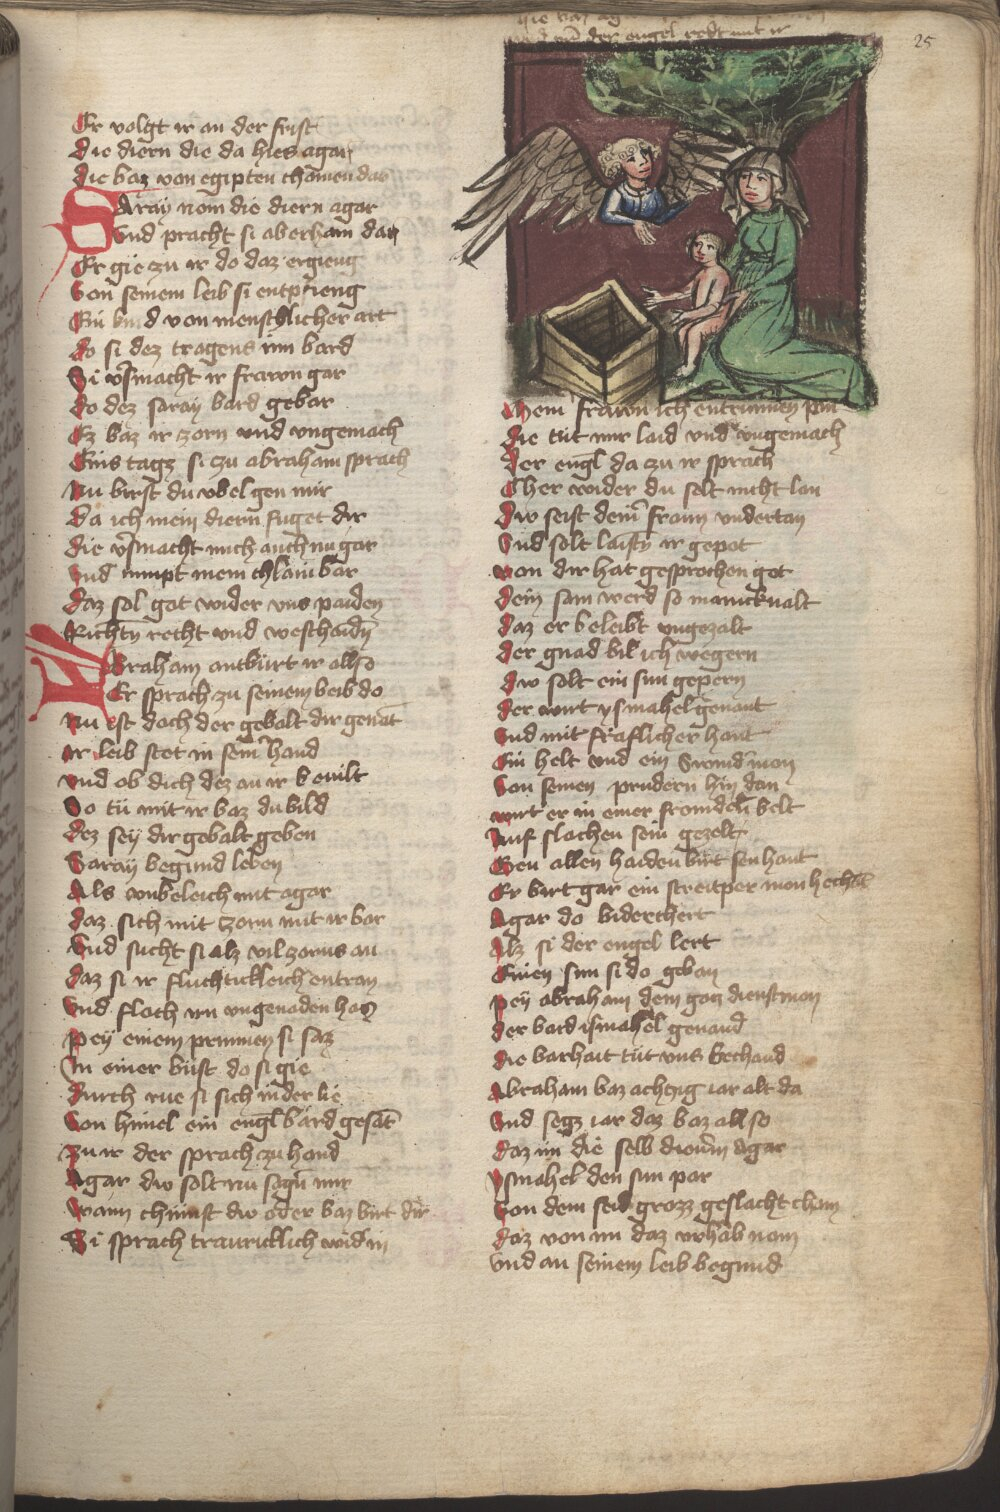 25
und der engel redt mit ir
Er volgt ir an der frist
die diern die da hies agar
die baz von egipten chomen dar
Saray nom die diern agar
Vnd pracht si aberham dar
Er gie zu ir do daz ergieng
Von seinem leib si entpfieng
Ein kind von menschlicher art
do si dez tragens inn bard
Si v̾smacht ir frawn gar
do dez saray bard gebar
Ez baz ir zorn vnd vngemach
Eins tagz si zu abraham sprach
Nu birst du vbel gen mir
da ich mein diern fuget dir
die v̾smacht mich auch nu gar
Vnd nimpt mein chlain bar
daz sol got wider vns paiden
Richtn̄ recht vnd beschaidn̄
Abraham antburt ir allso
Er sprach zu seinem beib do
Nu ist doch der gebalt dir genāt
ir leib stet in sein̄ hand
vnd ob dich dez an ir beuilt
So tü mit ir baz du bild
dez sey dir gebalt geben
Saray begund leben
Als vnbeleich mit agar
daz sich mit zorn mit ir bar
Vnd sucht si alz vil zorns an
daz si ir fluchtickleich entran
Vnd floch im vngenaden haz
Pey einem prunnen si saz
In einer büst do si gie
durch rue si sich nider lie
Von himel ein engl bard gesāt
Zu ir der sprach zu hand
Agar dw solt nu sagn̄ mir
Wann chumst dw oder baz birt dir
Si sprach trauricklich wid in
Mein̄ frawn ich entrunnen pin
die tüt mir laid vnd vngemach
der engl da zu ir sprach
Cher wider du solt nicht lan
dw seist dein̄ frawn vndertan
Vnd solt laistn̄ ir gepot
von dir hat gesprochen got
dein sam werd so manickualt
daz er beleibt vngezalt
der gnad bil ich wegern
dw solt ein sun gepern
der wirt ysmahel genant
Vnd mit freflicher hant
Ein helt vnd ein fromd̾ mon
Von seinen prudern hin dan
wirt er in einer fromden belt
Auf slachen sein gezelt
Gen allen haiden birt sein hant
Er birt gar ein streitper mon
Agar do biderchert
Alz si der engel lert
Einen sun si do geban
Pey abraham dem gotz dienstmon
der bard ismahel genand
die barhait tüt vns bechand
Abraham baz achczig iar alt da
Vnd segz iar daz baz allso
daz im die selb diern̄ Agar
Ysmahel den sun par
Von dem seid grozz geslacht cham
daz von im daz vrhab nom
Vnd an seinem leib begund